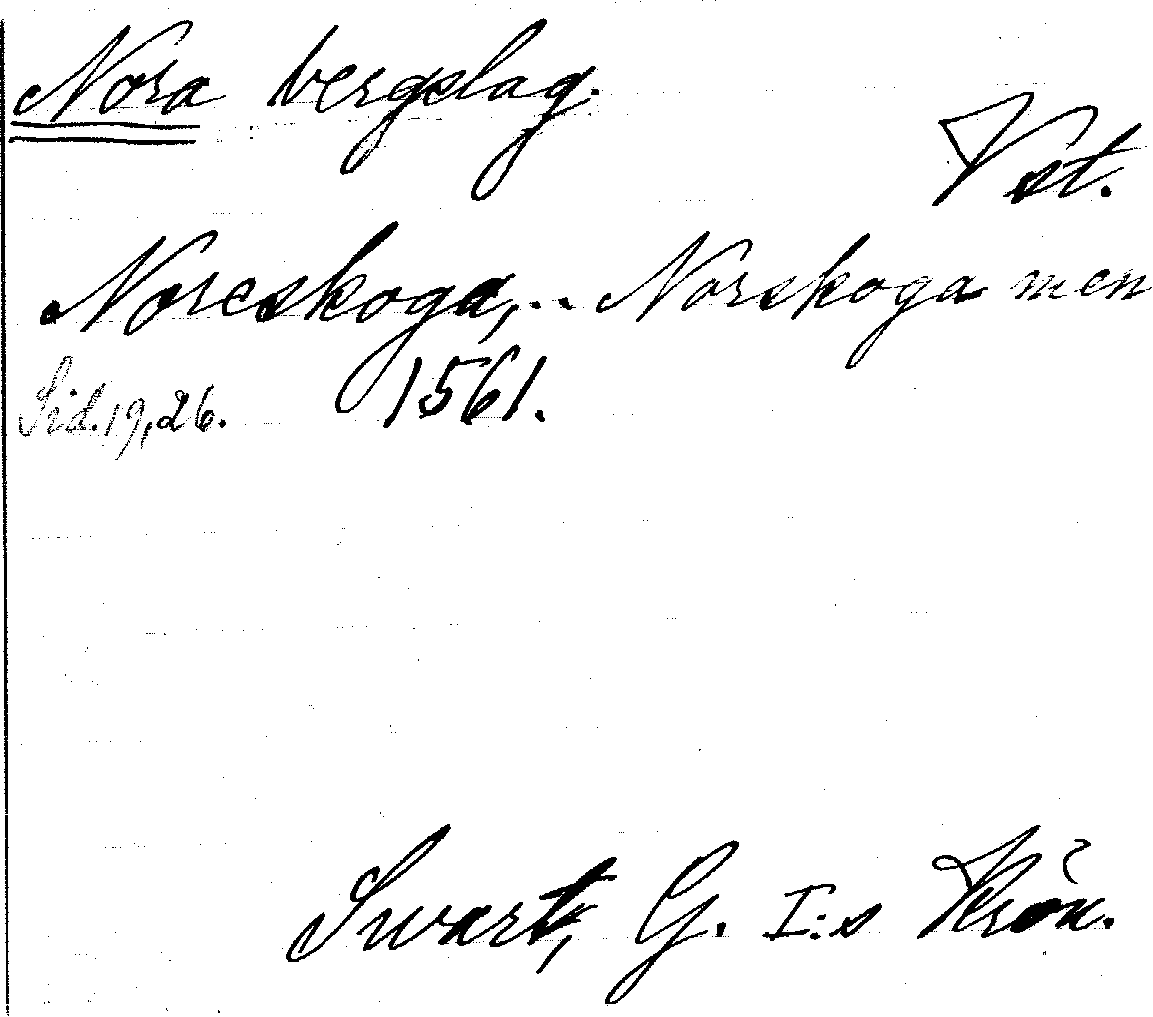 Nora bergslag.
Vst.
Noreskoga, .. Norskoga men
Sid. 19, 26. 1561.
Swart, G. I:s Krön.